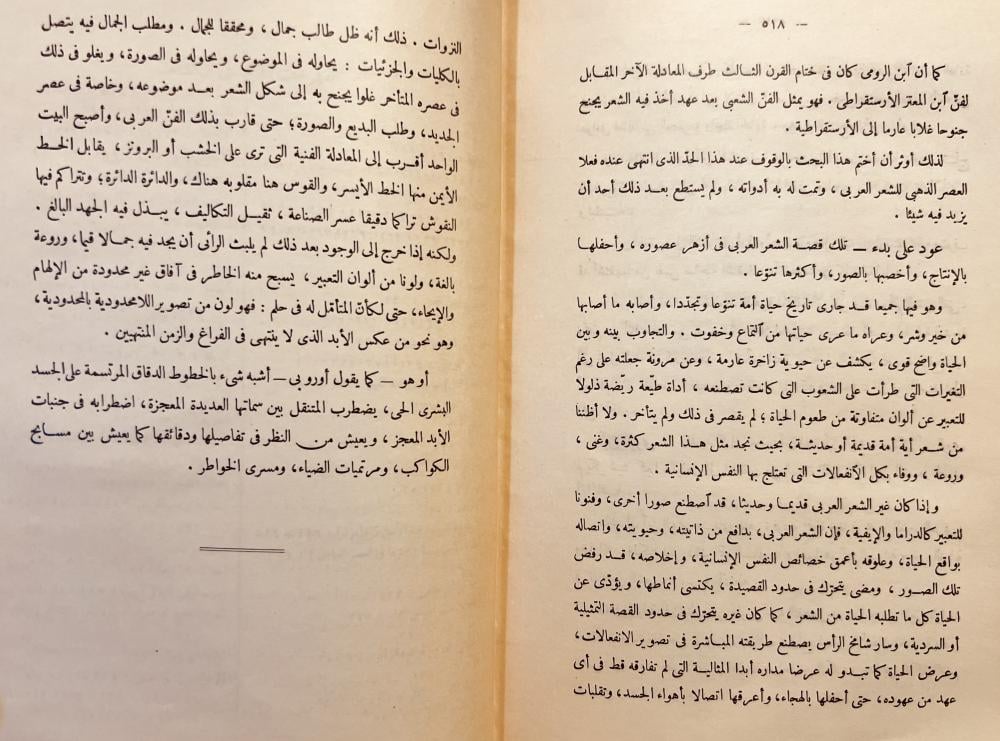 — ٥١٨ —
كما أن ابن الرومى كان فى ختام القرن الثالث طرف المعادلة الآخر المقابل
لفنّ ابن المعتز الأرستقراطى . فهو يمثل الفنّ الشعبى بعد عهد أخذ فيه الشعر يجنح
جنوحا غلابا عارما إلى الأرستقراطية .
لذلك أوثر أن أختم هذا البحث بالوقوف عند هذا الحدّ الذى انتهى عنده فعلا
العصر الذهبى للشعر العربى ، وتمت له به أدواته ، ولم يستطع بعد ذلك أحد أن
يزيد فيه شيئا .
عود على بدء — تلك قصة الشعر العربى فى أزهر عصوره ، وأحفلها
بالإنتاج، وأخصبها بالصور، وأكثرها تنوّعا .
وهو فيها جميعا قد جارى تاريخ حياة أمة تنوّعا وتجدّدا، وأصابه ما أصابها
من خير وشر، وعراه ما عرى حياتها من التماع وخفوت . والتجاوب بينه وبين
الحياة واضح قوى ، يكشف عن حيوية زاخرة عارمة ، وعن مرونة جعلته على رغم
التغيرات التى طرأت على الشعوب التى كانت تصطنعه ، أداة طيّعة ريّضة ذلولا
للتعبير عن ألوان متفاوتة من طعوم الحياة ؛ لم يقصر فى ذلك ولم يتأخر . ولا أظننا
من شعر أية أمة قديمة أو حديثة، بحيث نجد مثل هذا الشعر كثرة، وغنى ،
وروعة ، ووفاء بكل الانفعالات التى تعتلج بها النفس الإنسانية .
وإذا كان غير الشعر العربى قديما وحديثا، قد اصطنع صورا أخرى، وفنونا
للتعبير كالدراما والإيفية، فإن الشعر العربى، بدافع من ذاتيته، وحيويته، واتصاله
بواقع الحياة، وعلوقه بأعمق خصائص النفس الإنسانية، وإخلاصه، قد رفض
تلك الصور ، ومضى يتحرّك فى حدود القصيدة ، يكتسى أنماطها، ويؤدّى عن
الحياة كل ما تطلبه الحياة من الشعر ، كما كان غيره يتحرّك فى حدود القصة التمثيلية
أو السردية، وسار شامخ الرأس يصطنع طريقته المباشرة فى تصوير الانفعالات،
وعرض الحياة كما تبدو له عرضا مداره أبدا المثالية التى لم تفارقه قط فى أى
عهد من عهوده، حتى أحفلها بالهجاء، وأعرقها اتصالا بأهواء الجسد، وتقلبات
النزوات . ذلك أنه ظل طالب جمال ، ومحققا للجمال . ومطلب الجمال فيه يتصل
بالكليات والجزئيات : يحاوله فى الموضوع، ويحاوله فى الصورة، ويغلو فى ذلك
فى عصره المتأخر غلوا يجنح به إلى شكل الشعر بعد موضوعه، وخاصة فى عصر
الجديد، وطلب البديع والصورة؛ حتى قارب بذلك الفنّ العربى، وأصبح البيت
الواحد أقرب إلى المعادلة الفنية التى ترى على الخشب أو البرونز ، يقابل الخط
الأيمن منها الخط الأيسر، والقوس هنا مقلوبه هناك، والدائرة الدائرة؛ وتتراكم فيها
النقوش تراكما دقيقا عسر الصناعة ، ثقيل التكاليف ، يبذل فيه الجهد البالغ .
ولكنه إذا خرج إلى الوجود بعد ذلك لم يلبث الرائى أن يجد فيه جمالا قيما، وروعة
بالغة، ولونا من ألوان التعبير، يسبح منه الخاطر فى آفاق غير محدودة من الإلهام
والإيحاء، حتى لكأنّ المتأمّل له فى حلم : فهو لون من تصوير اللامحدودية بالمحدودية،
وهو نحو من عكس الأبد الذى لا ينتهى فى الفراغ والزمن المنتهيين .
أو هو — كما يقول أوروبى — أشبه شىء بالخطوط الدقاق المرتسمة على الجسد
البشرى الحى، يضطرب المتنقل بين سماتها العديدة المعجزة، اضطرابه فى جنبات
الأبد المعجز ، ويعيش من النظر فى تفاصيلها ودقائقها كما يعيش بين مسابح
الكواكب، ومرتميات الضياء، ومسرى الخواطر .